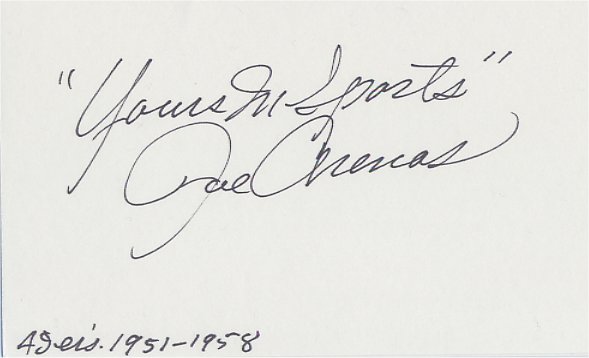 "Yours In Sports"
Joe Arenas
49er's. 1951-1958